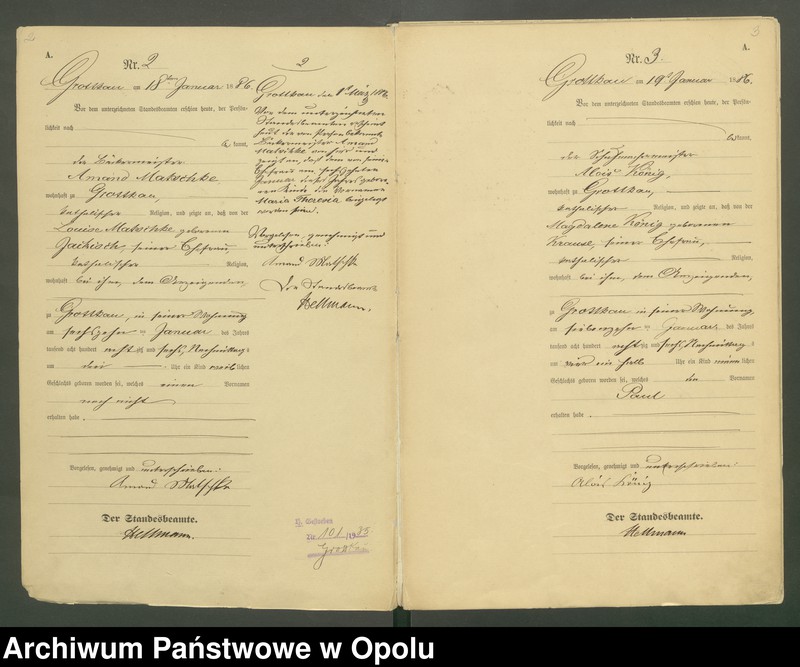 2
A.
Nr. 2
Grottkau am 18ten Januar 1886.
Vor dem unterzeichneten Standesbeamten erschien heute, der Persön-
lichkeit nach
bekannt,
der Bäckermeister
Amand Matschke
wohnhaft zu Grottkau,
katholischer Religion, und zeigte an, daß von der
Louise Matschke geborenen
seiner Ehefrau,
katholischer Religion,
wohnhaft bei ihm, dem Anzeigenden,
zu Grottkau, in seiner Wohnung
am sechszehnten Januar des Jahres
tausend acht hundert achtzig und sechs, Nachmittags
um drei Uhr ein Kind weiblichen
Geschlechts geboren worden sei, welches einen Vornamen
noch nicht
erhalten habe.
Vorgelesen, genehmigt und unterschrieben:
Amand Matschke
Der Standesbeamte.
Hellmann.
2
Grottkau den März 1886.
Vor dem unterzeichneten
Standesbeamten erschien
heute der von Person bekannte
Bäckermeister Amand
Matschke und
zeigte an, daß dem von seiner
Ehefrau am sechszehnten
Januar dieses Jahres gebore-
nen Kinde die Vornamen
Maria Theresia beigelegt
worden seien.
Vorgelesen, genehmigt und
unterschrieben:
Amand Matschke
Der Standesbeamte
Hellmann.
Gestorben
Nr. 101/19
Grottkau
3
A.
Nr. 3.
Grottkau am 19ten Januar 1886.
Vor dem unterzeichneten Standesbeamten erschien heute, der Persön-
lichkeit nach
bekannt,
der Schuhmachermeister
Alois König,
wohnhaft zu Grottkau,
katholischer Religion, und zeigte an, daß von der
Magdalene König geborenen
Krause, seiner Ehefrau,
katholischer Religion,
wohnhaft bei ihm, dem Anzeigenden,
zu Grottkau in seiner Wohnung
am siebenzehnten Januar des Jahres
tausend acht hundert achtzig und sechs, Nachmittags
um vier ein halb Uhr ein Kind männlichen
Geschlechts geboren worden sei, welches den Vornamen
Paul
erhalten habe.
Vorgelesen, genehmigt und unterschrieben:
Alois König
Der Standesbeamte.
Hellmann.
Archiwum Państwowe w Opolu